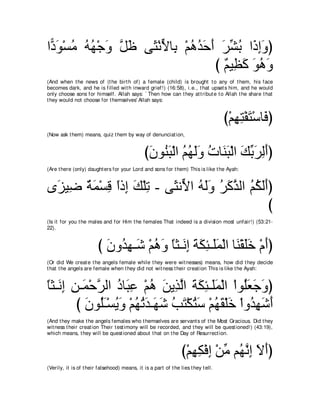 (وَإِذَا بُشِّرَ أَحَدُهُمْ بِالاٍّنْثَى ظَلَّ وَجْهُهُ مُسْوَدًّا
وَهُوَ كَظِيمٌ )
(And when the news of (the birth of) a female (child) is brought to any of them, his face
becomes dark, and he is filled with inward grief!) (16:58), i.e., that upsets him, and he would
only choose sons for himself. Allah says: `Then how can they attribute to Allah the share that
they would not choose for themselves' Allah says:
(فَاسْتَفْتِهِمْ)
(Now ask them) means, quiz them by way of denunciation,
(أَلِرَبِّكَ الْبَنَاتُ وَلَهُمُ الْبَنُونَ)
(Are there (only) daughters for your Lord and sons for them) This is like the Ayah:
(أَلَكُمُ الذَّكَرُ وَلَهُ الاٍّنثَى - تِلْكَ إِذاً قِسْمَةٌ ضِيزَى
)
(Is it for you the males and for Him the females That indeed is a division most unfair!) (53:21-
22).
(أَمْ خَلَقْنَا الْمَلَـئِكَةَ إِنَـثاً وَهُمْ شَـهِدُونَ )
(Or did We create the angels female while they were witnesses) means, how did they decide
that the angels are female when they did not witness their creation This is like the Ayah:
(وَجَعَلُواْ الْمَلَـئِكَةَ الَّذِينَ هُمْ عِبَادُ الرَّحْمَـنِ إِنَـثاً
أَشَهِدُواْ خَلْقَهُمْ سَتُكْتَبُ شَهَـدَتُهُمْ وَيُسْـَلُونَ )
(And they make the angels females who themselves are servants of the Most Gracious. Did they
witness their creation Their testimony will be recorded, and they will be questioned!) (43:19),
which means, they will be questioned about that on the Day of Resurrection.
(أَلاَ إِنَّهُم مِّنْ إِفْكِهِمْ)
(Verily, it is of their falsehood) means, it is a part of the lies they tell.